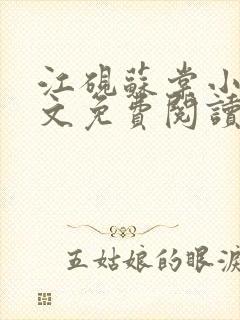 江硯蘇棠小
文免費閱讀
五姑娘的眼淚